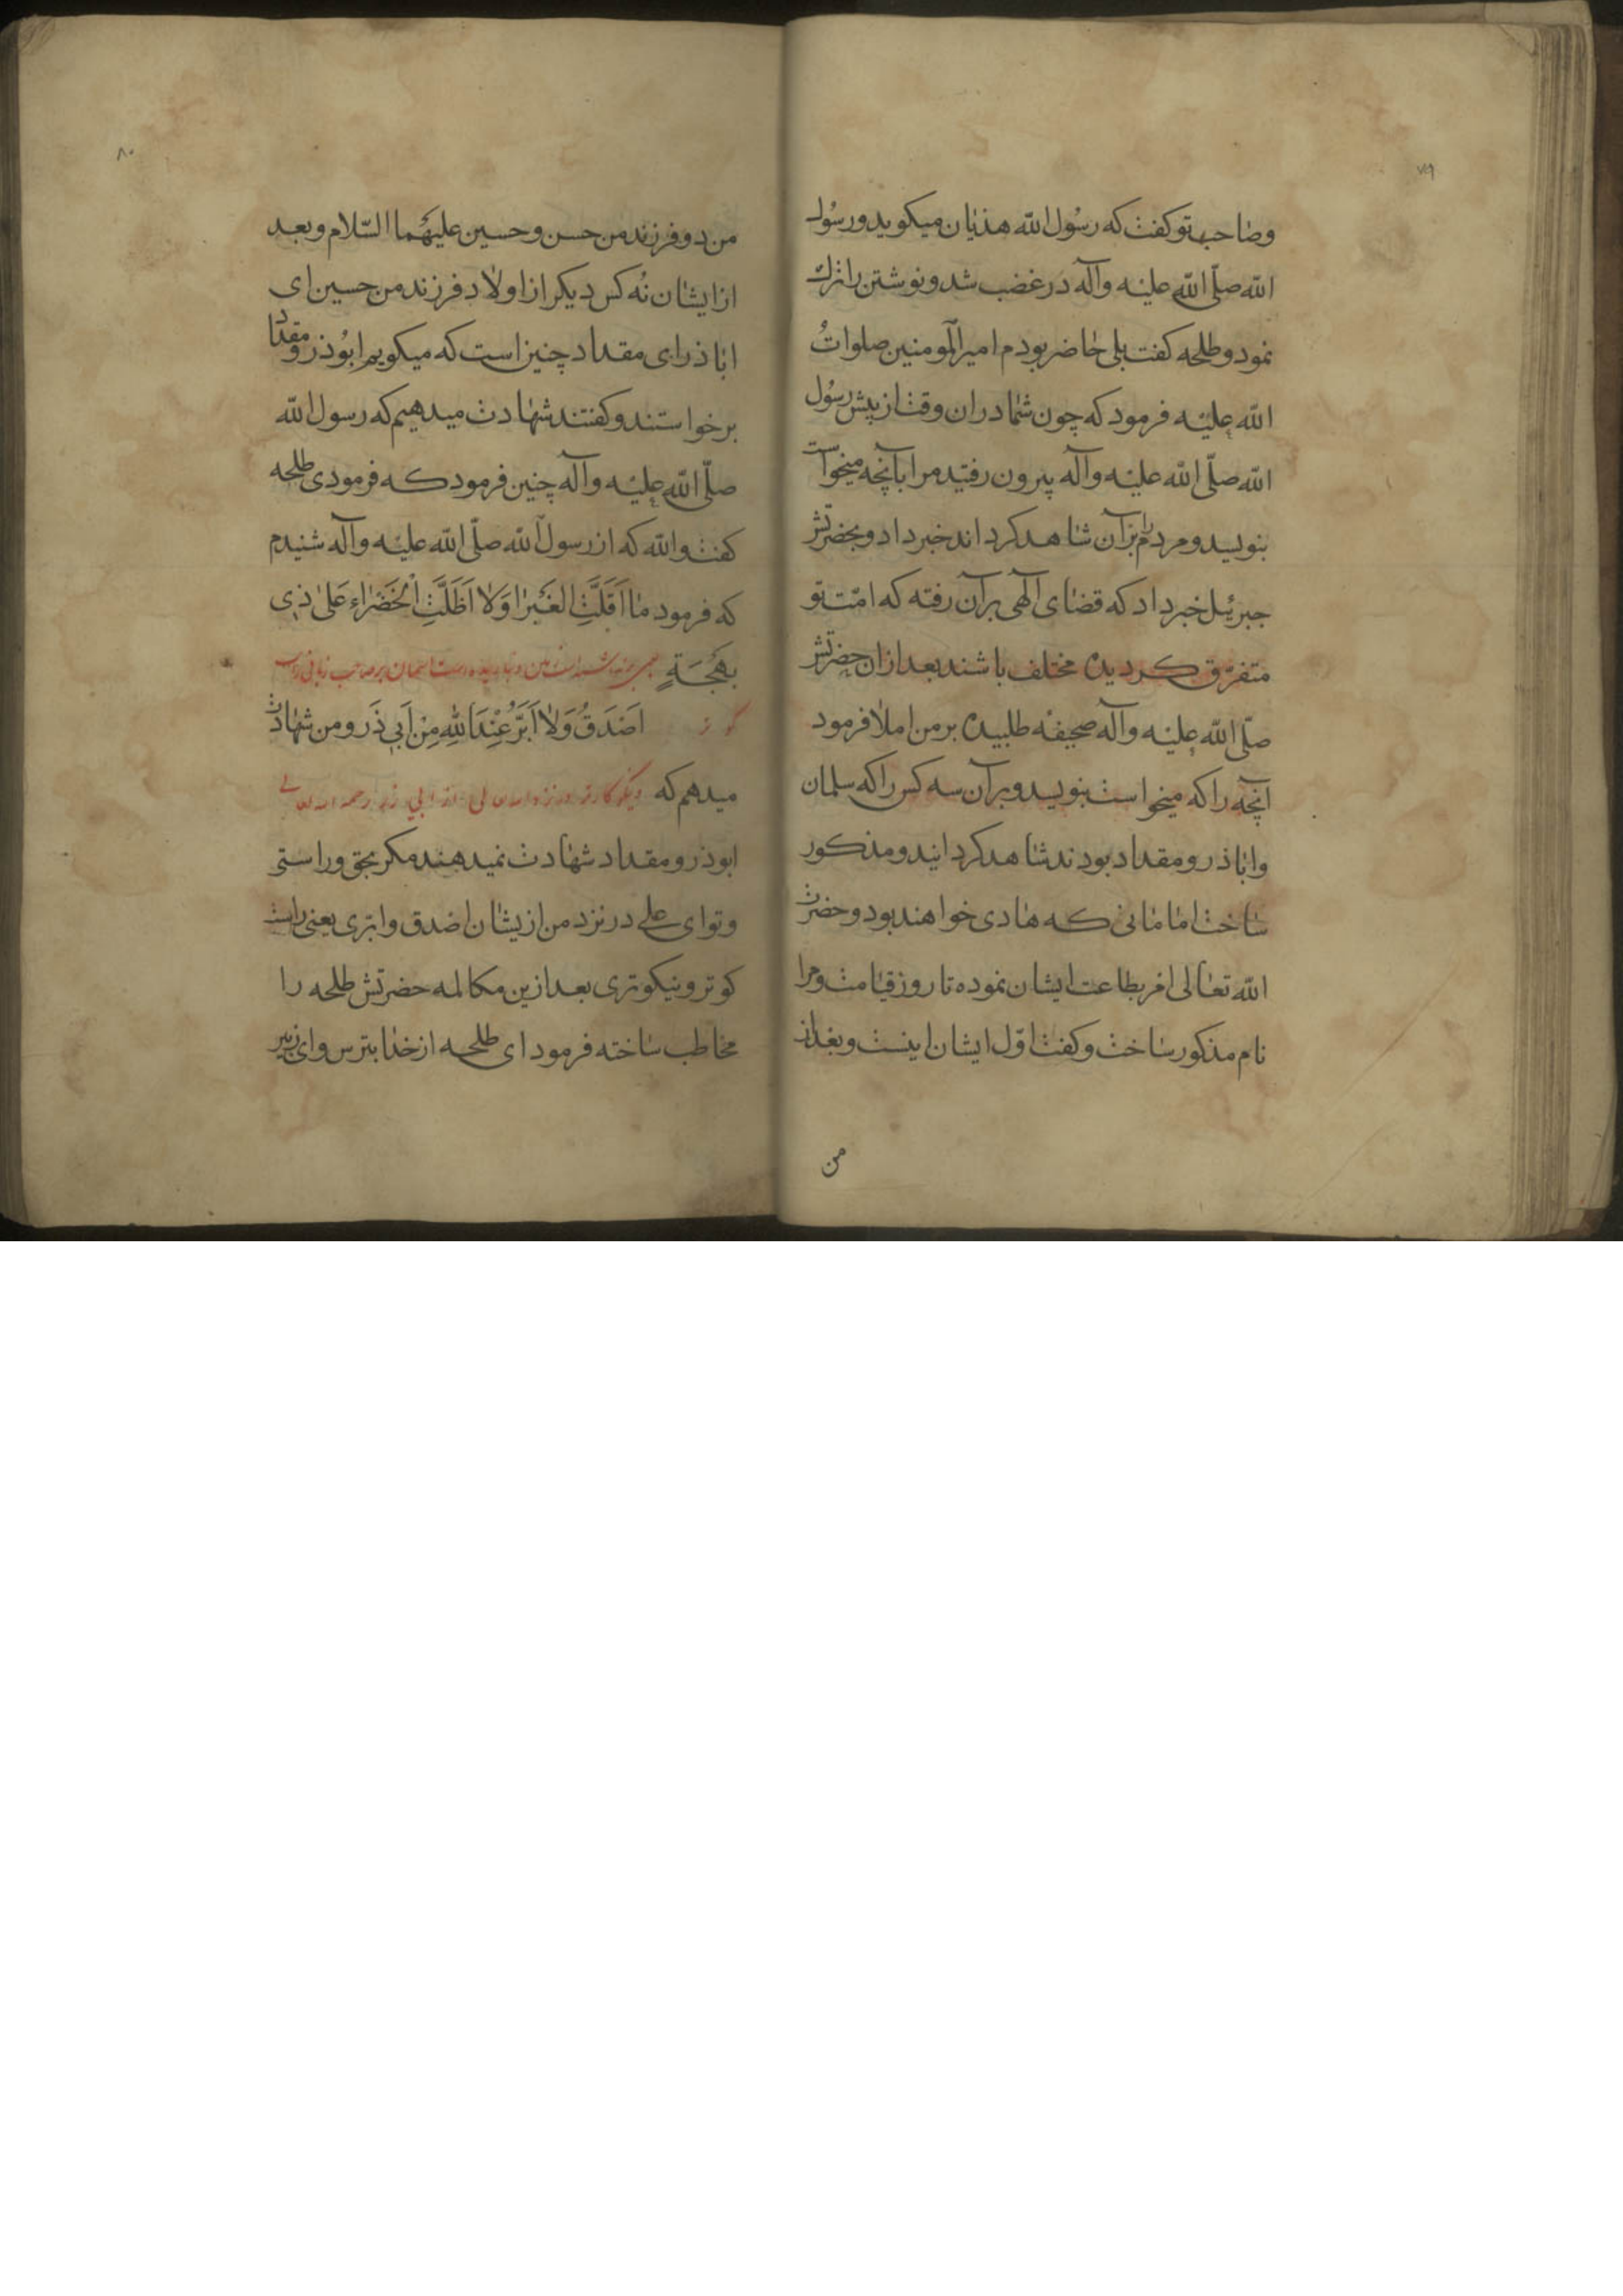 ۷۹
وصاحب تو کفت که رسُول الله هذیان میکوید ورسُول
الله صلّی الله علیه وآله درغضب شد ونوشتن را ترک
نمود وطلحه کفت بلی حاضر بودم امیرالمومنین صلواتُ
الله علیه فرمود که چون شما دران وقت از پیش رسُول
الله صلّی الله علیه وآله بیرون رفتید مرا بآنچه میخواست
بنویسد ومردم را بران شاهد کرداند خبر داد وبحضرتش
جبرئیل خبر داد که قضای آلهی برآن رفته که امّت تو
متفرّق کردیده مختلف باشند بعد ازان حضرتش
صلّی الله علیه وآله صحیفه طلبیده برمن املا فرمود
آنچه را که میخواست بنویسد وبرآن سه کس را که سلمان
واباذر ومقداد بودند شاهد کردانید ومذکور
ساخت امامانی که هادی خواهند بود وحضرت
الله تعالی امر بطاعت ایشان نموده تا روز قیامت ومرا
نام مذکور ساخت وکفت اوّل ایشان اینست وبعد از
من
۸۰
من دو فرزند من حسن وحسین علیهما السّلام وبعد
از ایشان نُه کس دیکر از اولاد فرزند من حسین ای
اباذر ای مقداد چنین است که میکویم ابوُذر ومقداد
برخواستند وکفتند شهادت میدهیم که رسول الله
صلّی الله علیه وآله چنین فرمود که فرمودی طلحه
کفت والله که از رسول الله صلّی الله علیه وآله شنیدم
که فرمود ما اَقَلَّتِ الغَبْرا وَلا اَظَلَّتِ الْخَضْراء عَلیٰ ذِی
لهْجَةٍ یعنی برنداشته است زمین و سایه نیانداخته است اسمان بر صاحب زبانی راست
کو تر اَصْدَقُ وَلا اَبَرُّ عِنْدَ اللهِ مِنْ اَبی ذَر ومن شهادت
میدهم که ونیکو کارتر در نزد الله تعالی از ابی ذر رحمه الله تعالی
ابوذر ومقداد شهادت نمیدهند مکر بحق وراستی
وتو ای علی در نزد من ازیشان اصدق وابرّی یعنی راست
کوتر ونیکوتری بعد ازین مکالمه حضرتش طلحه را
مخاطب ساخته فرمود ای طلحه از خدا بترس وای زبیر